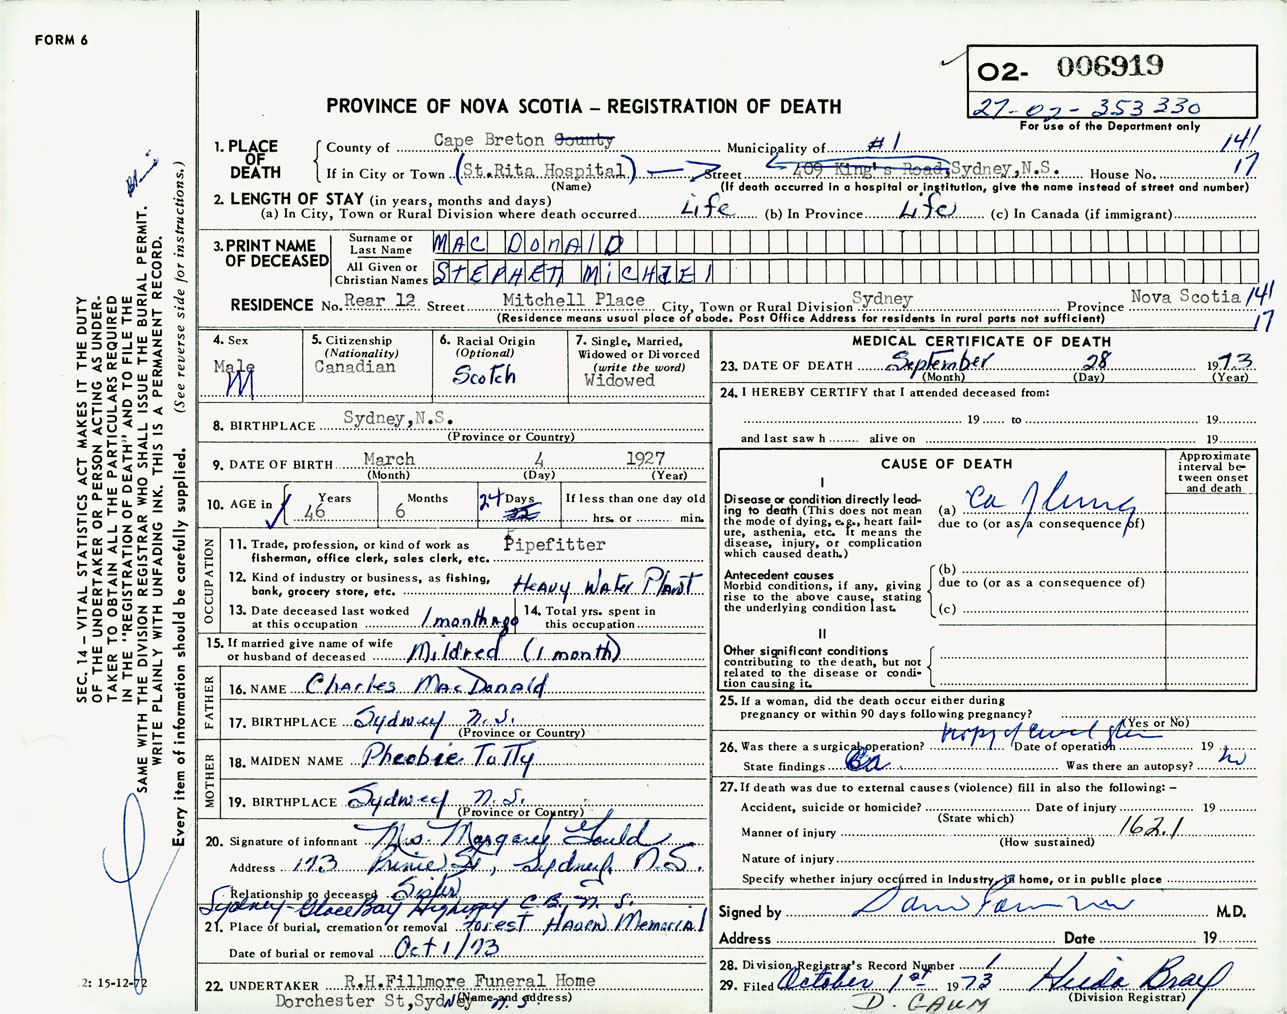 FORM 6
O2- 006919
27-02-353330
For use of the Department only
PROVINCE OF NOVA SCOTIA – REGISTRATION OF DEATH
1. PLACE OF DEATH
County of Cape Breton County Municipality of #1 141
If in City or Town (St.Rita Hospital) Street 409 King's Road, Sydney, N.S. House No. 17
(Name) (If death occurred in a hospital or institution, give the name instead of street and number)
2. LENGTH OF STAY (in years, months and days)
(a) In City, Town or Rural Division where death occurred Life (b) In Province Life (c) In Canada (if immigrant)
3. PRINT NAME OF DECEASED
Surname or Last Name MAC DONALD
All Given or Christian Names STEPHEN MICHAEL
RESIDENCE No. Rear 12 Street Mitchell Place City, Town or Rural Division Sydney Province Nova Scotia 141
(Residence means usual place of abode. Post Office Address for residents in rural parts not sufficient) 17
4. Sex
Male
M
5. Citizenship
(Nationality)
Canadian
6. Racial Origin
(Optional)
Scotch
7. Single, Married,
Widowed or Divorced
(write the word)
Widowed
8. BIRTHPLACE Sydney, N.S.
(Province or Country)
9. DATE OF BIRTH March 4 1927
(Month) (Day) (Year)
10. AGE in Years 46 Months 6 Days 24 If less than one day old
hrs. or min.
OCCUPATION
11. Trade, profession, or kind of work as Pipefitter
fisherman, office clerk, sales clerk, etc.
12. Kind of industry or business, as fishing, Heavy Water Plant
bank, grocery store, etc.
13. Date deceased last worked
at this occupation 1 month ago
14. Total yrs. spent in
this occupation
15. If married give name of wife
or husband of deceased Mildred (1 month)
FATHER
16. NAME Charles MacDonald
17. BIRTHPLACE Sydney N.S.
(Province or Country)
MOTHER
18. MAIDEN NAME Pheobie Tutty
19. BIRTHPLACE Sydney N.S.
(Province or Country)
20. Signature of informant Mrs. Margaret Gould
Address 173 Prince St, Sydney, N.S.
Relationship to deceased Sister
Sydney-Glace Bay Highway C.B. N.S.
21. Place of burial, cremation or removal Forest Haven Memorial
Date of burial or removal Oct 1/73
22. UNDERTAKER R.H.Fillmore Funeral Home
(Name and address)
Dorchester St, Sydney N.S
MEDICAL CERTIFICATE OF DEATH
23. DATE OF DEATH September 28 1973
(Month) (Day) (Year)
24. I HEREBY CERTIFY that I attended deceased from:
19 to 19
and last saw h alive on 19
CAUSE OF DEATH
Approximate interval between onset and death
I
Disease or condition directly leading to death (This does not mean the mode of dying, e.g., heart failure, asthenia, etc. It means the disease, injury, or complication which caused death.)
(a) Ca of lung
due to (or as a consequence of)
Antecedent causes
Morbid conditions, if any, giving rise to the above cause, stating the underlying condition last.
(b)
due to (or as a consequence of)
(c)
II
Other significant conditions
contributing to the death, but not related to the disease or condition causing it.
25. If a woman, did the death occur either during
pregnancy or within 90 days following pregnancy?
(Yes or No)
26. Was there a surgical operation? Date of operation 19
State findings Ca Was there an autopsy? no
27. If death was due to external causes (violence) fill in also the following: –
Accident, suicide or homicide? Date of injury 19
(State which)
Manner of injury 162.1
(How sustained)
Nature of injury
Specify whether injury occurred in industry, in home, or in public place
Signed by M.D.
Address Date 19
28. Division Registrar's Record Number 1
29. Filed October 1st 1973 Hilda Bray
(Division Registrar)
D. GAUM
SEC. 14 – VITAL STATISTICS ACT MAKES IT THE DUTY
OF THE UNDERTAKER OR PERSON ACTING AS UNDERTAKER
TO OBTAIN ALL THE PARTICULARS REQUIRED
IN THE "REGISTRATION OF DEATH" AND TO FILE THE
SAME WITH THE DIVISION REGISTRAR WHO SHALL ISSUE THE BURIAL PERMIT.
WRITE PLAINLY WITH UNFADING INK. THIS IS A PERMANENT RECORD.
Every item of information should be carefully supplied. (See reverse side for instructions.)
2: 15-12-72